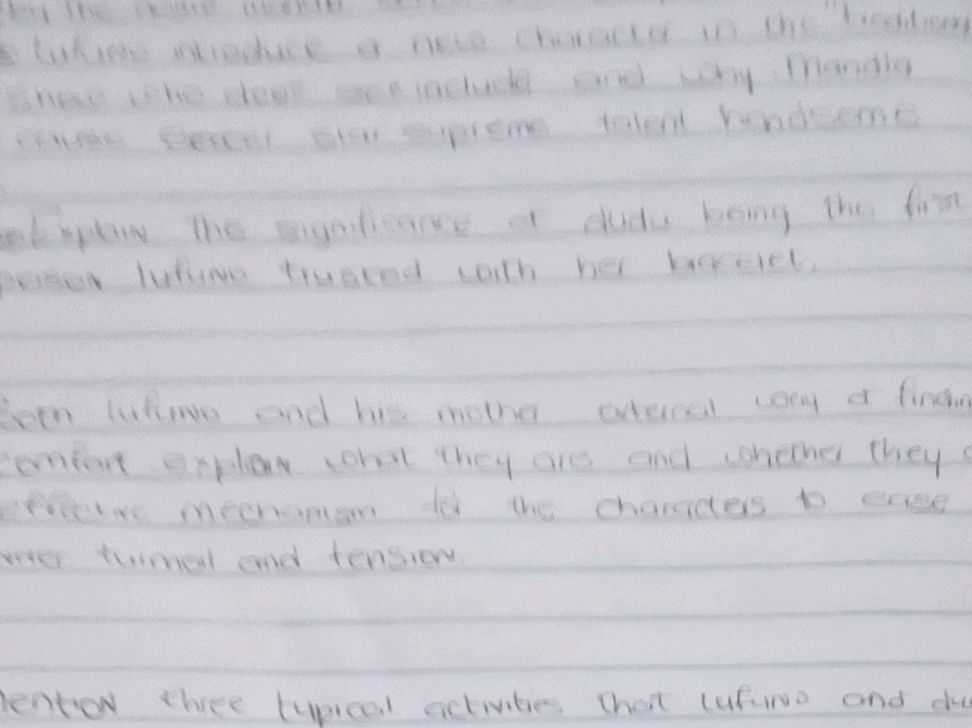 by the
lufuno introduce a new character in the "tradition
show who does include and why Mandla
star supreme talent handsome
Explain the significance of dudu being the first
person lufuno trusted with her
been lufuno and his mother external way of findin
comfort explain what they are and whether they
effective mechanism for the characters to ease
inner turmoil and tension.
Mention three typical activities that Lufuno and du